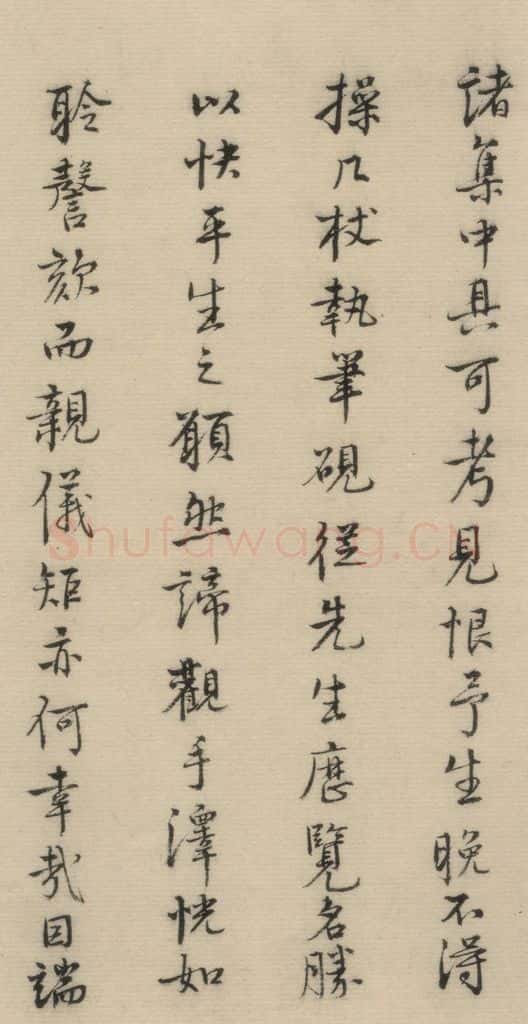 諸集中具可考見恨予生晚不得
操几杖執筆硯從先生歷覽名勝
以快平生之願然諦觀手澤恍如
聆謦欬而親儀矩亦何幸哉因端
Shufawang.cn